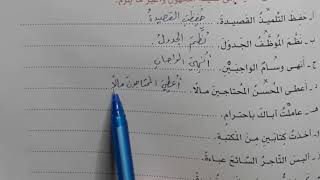 أ ـ حفظَ التلميذُ القصيدةَ. حُفِظَتِ القصيدةُ
ب ـ نظّمَ الموظّفُ الجدولَ. نُظِّمَ الجدولُ
ج ـ أنهى وسامٌ الواجبَينِ. أُنهِيَ الواجبانِ
د ـ أعطى المحسنُ المحتاجينَ مالًا. أُعطِيَ المحتاجونَ مالًا
هـ ـ عاملْتُ أباكَ باحترامٍ.
و ـ أخذتُ كتابَينِ من المكتبةِ.
ز ـ ألبسَ التاجرُ السائحَ عباءةً.